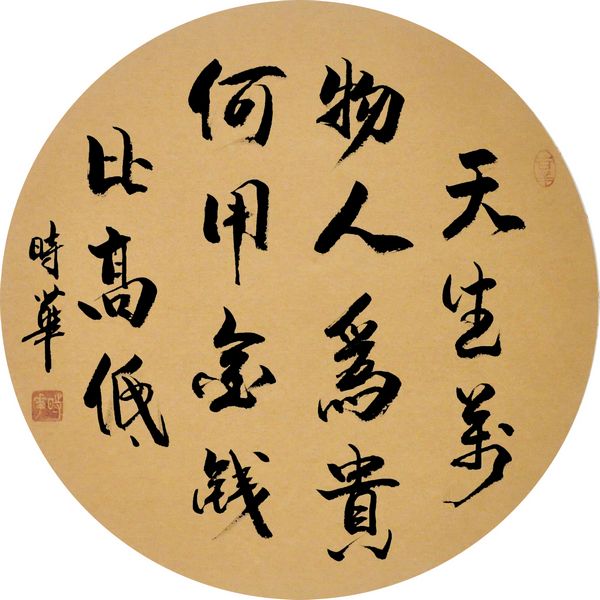 天生萬
物人為貴
何用金錢
比高低
時華
時華